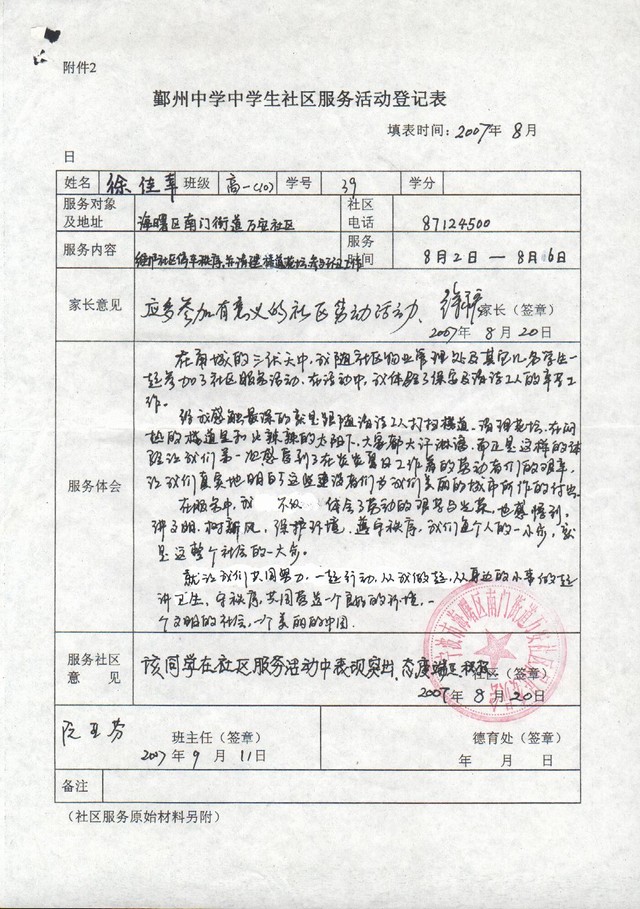 附件2
鄞州中学中学生社区服务活动登记表
填表时间：2007年 8月
日
姓名 徐佳 班级 高一(10) 学号 39 学分
服务对象及地址 海曙区南门街道万安社区 社区电话 87124500
服务内容 维护社区停车秩序,并清理楼道花坛, 服务时间 8月2日 — 8月6日
家长意见 应多参加有意义的社区劳动活动、 徐 家长（签章）
2007年 8月20日
服务体会
在甬城的三伏天中,我随社区物业管理处及其它几名学生一
起参加了社区服务活动。在活动中,我体验了保安及清洁工人的辛苦工
作。
给我感触最深的就是跟随清洁工人打扫楼道、清理花坛。在闷
热的楼道里和火辣辣的太阳下,大家都大汗淋漓。而正是这样的体
验让我们第一次感受到了在炎炎夏日工作着的劳动者们的艰辛,
让我们真实地明白了这些建设者们为我们美丽的城市所作的付出。
在服务中,我 不仅 体会了劳动的艰苦与光荣,也感悟到,
讲文明、树新风,保护环境,遵守秩序,我们每个人的一小步,就
是这整个社会的一大步。
就让我们共同努力,一起行动,从我做起,从身边的小事做起
讲卫生,守秩序,共同营造一个良好的环境,一
个文明的社会,一个美丽的中国.
服务社区意见 该同学在社区服务活动中表现突出、态度端正、积极
社区（签章）
2007年 8月20日
班主任（签章） 德育处（签章）
2007年 9月 11日 年 月 日
备注
（社区服务原始材料另附）